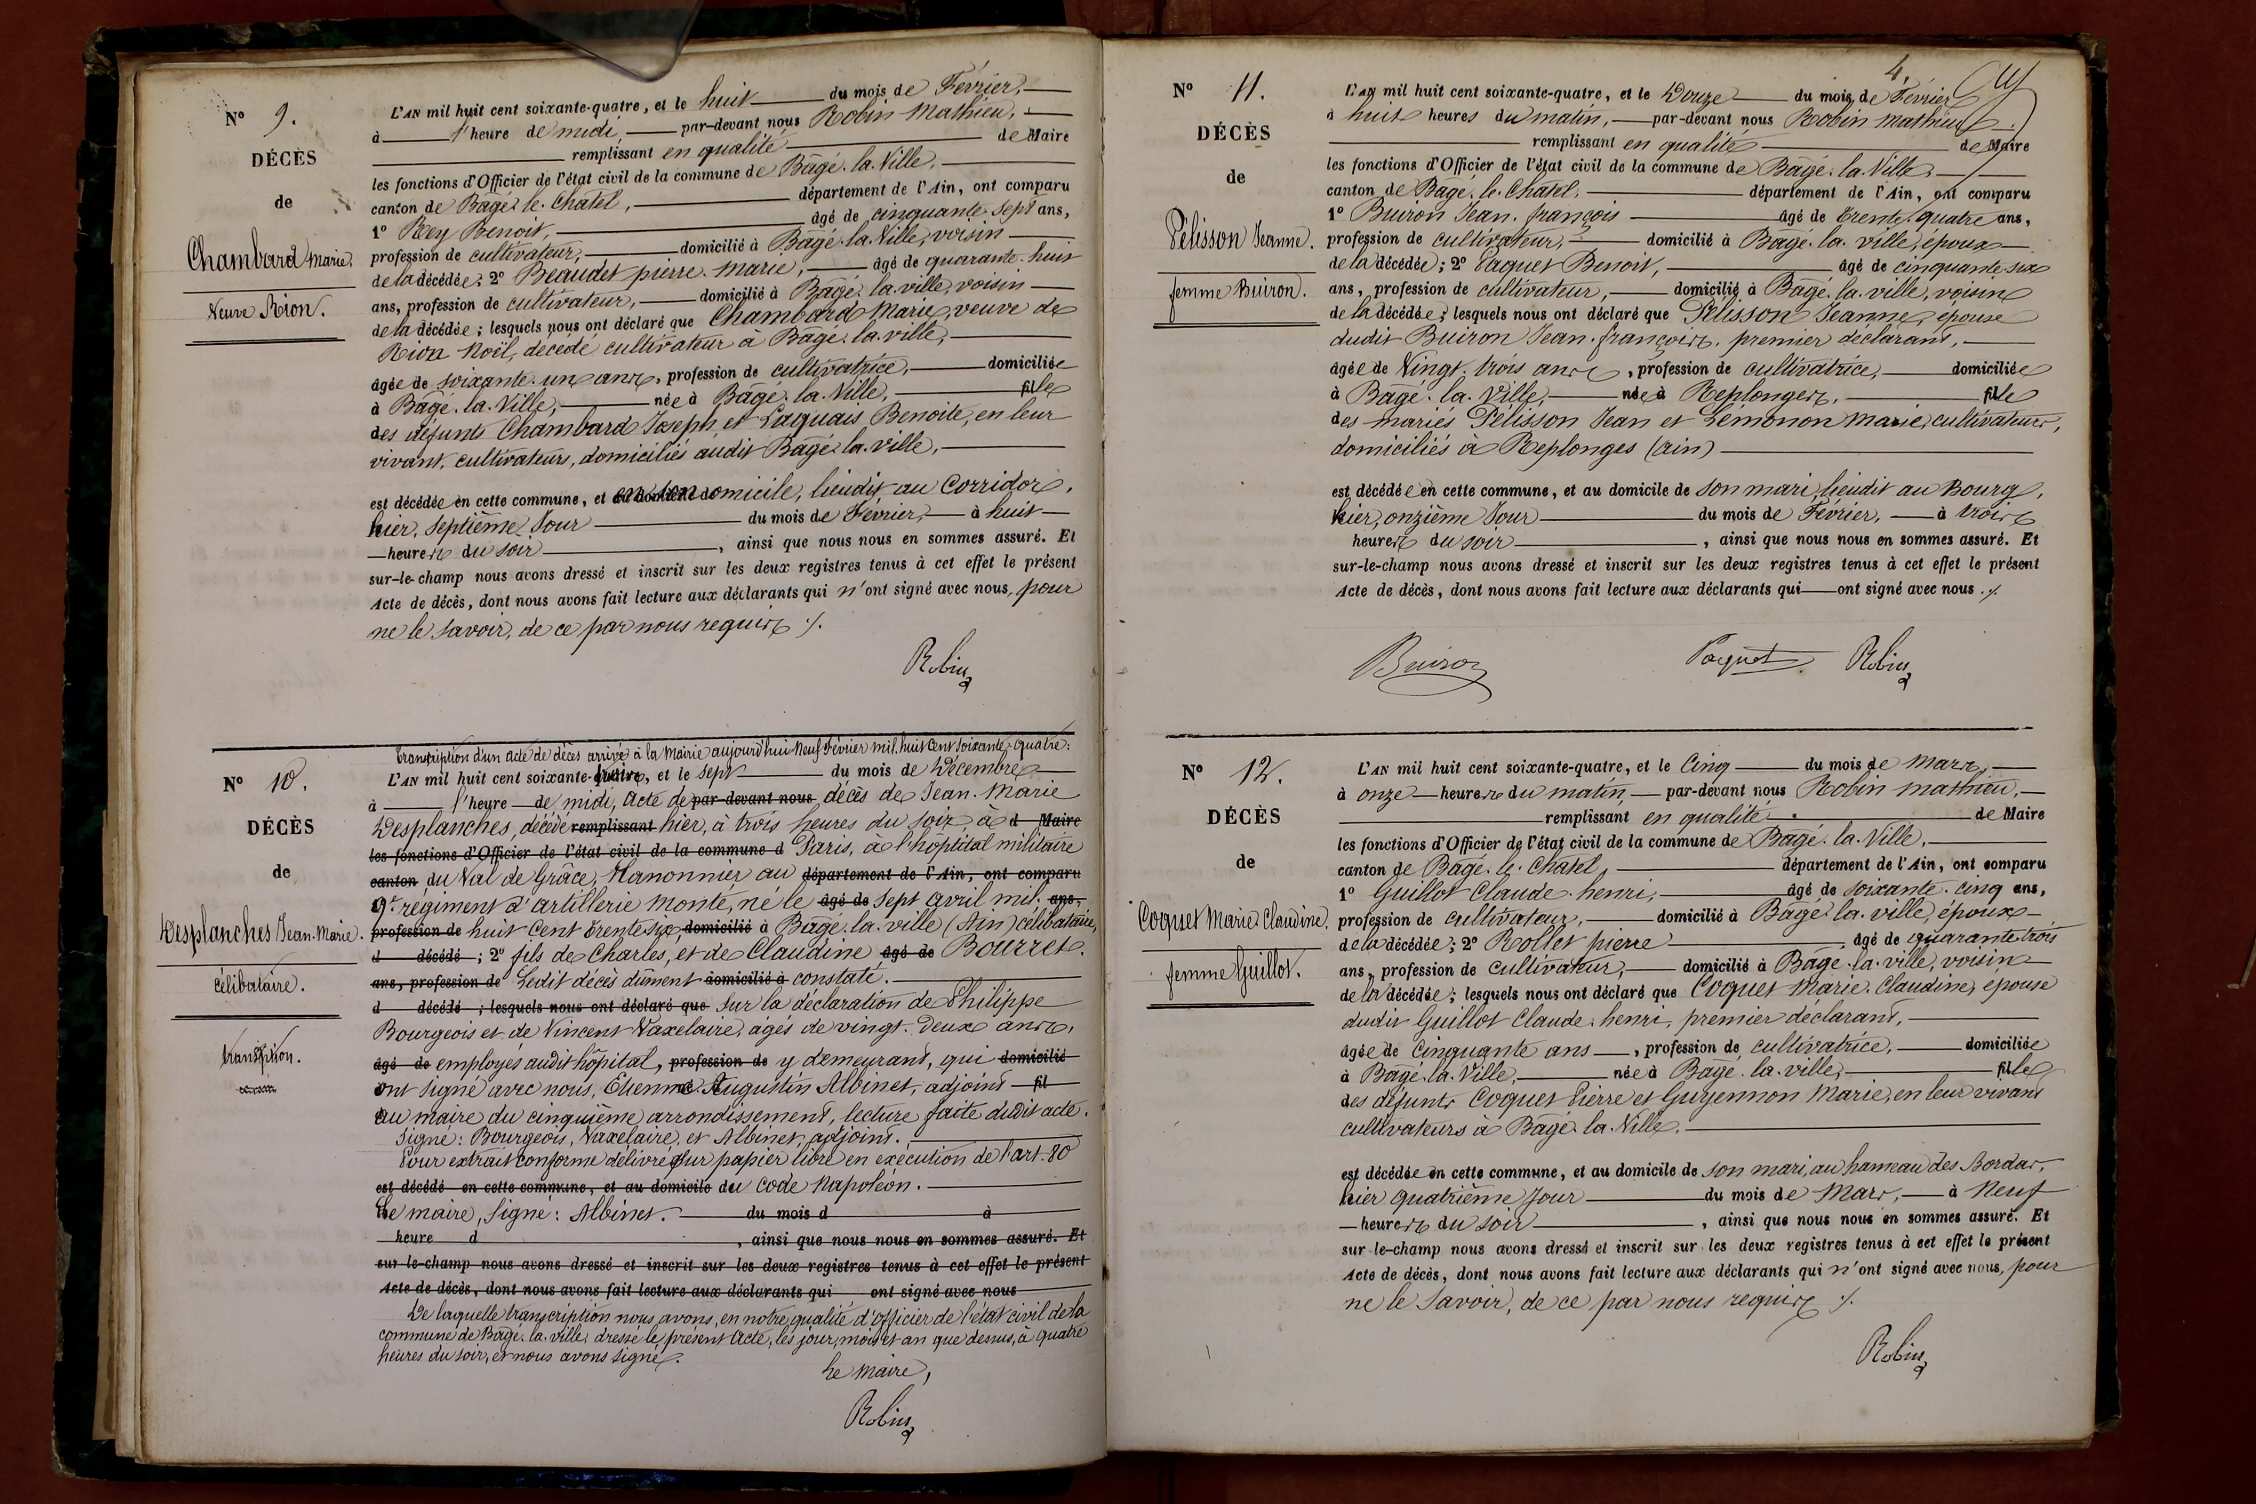 N° 9.
DÉCÈS
de
Chambard Marie.
Veuve Rion.
L'AN mil huit cent soixante-quatre, et le huit du mois de Février,
à l'heure de midi, par-devant nous Robin Mathieu,
remplissant en qualité de Maire
les fonctions d'Officier de l'état civil de la commune de Bâgé-la-Ville,
canton de Bâgé-le-Chatel, département de l'Ain, ont comparu
1° Rey Benoit, âgé de cinquante-sept ans,
profession de cultivateur, domicilié à Bâgé-la-Ville, voisin
de la décédée; 2° Beaudet pierre-marie, âgé de quarante-huit
ans, profession de cultivateur, domicilié à Bâgé-la-ville, voisin
de la décédée; lesquels nous ont déclaré que Chambard Marie, veuve de
Rion Noël, décédé cultivateur à Bâgé-la-ville,
âgée de soixante-un ans, profession de cultivatrice, domiciliée
à Bâgé-la-Ville, née à Bâgé-la-Ville, fille
des défunts Chambard Joseph et Paquais Benoite, en leur
vivant, cultivateurs, domiciliés audit Bâgé-la-ville,
est décédée en cette commune, et en son domicile, lieudit au Corridor,
hier, septième Jour du mois de Février, à huit
heures du soir, ainsi que nous nous en sommes assuré. Et
sur-le-champ nous avons dressé et inscrit sur les deux registres tenus à cet effet le présent
Acte de décès, dont nous avons fait lecture aux déclarants qui n'ont signé avec nous, pour
ne le savoir, de ce par nous requis ./.
Robin
Transcription d'un acte de décès arrivé à la Mairie aujourd'hui Neuf Février mil-huit cent soixante-quatre:
N° 10.
DÉCÈS
de
Desplanches Jean-Marie.
célibataire.
transcription.
L'AN mil huit cent soixante-trois, et le sept du mois de Décembre
à l'heure de midi, Acte de par-devant nous décès de Jean-Marie
Desplanches, décédé remplissant hier, à trois heures du soir, à d Maire
les fonctions d'Officier de l'état civil de la commune d Paris, à l'hôpital militaire
canton du Val de Grâce, Kanonnier au département de l'Ain, ont comparu
9e régiment d'artillerie monté, né le âgé de sept avril mil ans,
profession de huit cent trente six, domicilié à Bâgé-la-ville (Ain) célibataire,
d décédé; 2° fils de Charles, et de Claudine âgé de Bourret.
ans, profession de Ledit décès dûment domicilié à constaté.
d décédé; lesquels nous ont déclaré que sur la déclaration de Philippe
Bourgeois et de Vincent Vaxelaire, agés de vingt-deux ans,
âgé de employés audit hôpital, profession de y demeurant, qui domicilié
ont signé avec nous, Etienne Augustin Albinet, adjoint fil
au maire du cinquième arrondissement, lecture faite dudit acte.
Signé: Bourgeois, Vaxelaire, et Albinet, adjoint.
Pour extrait conforme délivré sur papier libre en exécution de l'art. 80
est décédé en cette commune, et au domicile du code Napoléon.
Le maire, Signé: Albinet. du mois d à
heure d, ainsi que nous nous en sommes assuré. Et
sur-le-champ nous avons dressé et inscrit sur les deux registres tenus à cet effet le présent
Acte de décès, dont nous avons fait lecture aux déclarants qui ont signé avec nous
De laquelle transcription nous avons, en notre qualité d'officier de l'état civil de la
commune de Bâgé-la-ville, dressé le présent acte, les jour, mois et an que dessus, à quatre
heures du soir, et nous avons signé.
Le Maire,
Robin
4.
N° 11.
DÉCÈS
de
Pélisson Jeanne.
femme Buiron.
L'AN mil huit cent soixante-quatre, et le Douze du mois de Février
à huit heures du matin, par-devant nous Robin mathieu
remplissant en qualité de Maire
les fonctions d'Officier de l'état civil de la commune de Bâgé-la-Ville
canton de Bâgé-le-Chatel, département de l'Ain, ont comparu
1° Buiron Jean-françois âgé de trente-quatre ans,
profession de cultivateur, domicilié à Bâgé-la-ville, époux
de la décédée; 2° Paquet Benoit, âgé de cinquante-six
ans, profession de cultivateur, domicilié à Bâgé-la-ville, voisin
de la décédée; lesquels nous ont déclaré que Pélisson Jeanne, épouse
dudit Buiron Jean-françois, premier déclarant,
âgée de Vingt-trois ans, profession de cultivatrice, domiciliée
à Bâgé-la-Ville, née à Replonges, fille
des mariés Pélisson Jean et Lémonon marie, cultivateurs,
domiciliés à Replonges (ain)
est décédée en cette commune, et au domicile de son mari, lieudit au Bourg,
hier, onzième Jour du mois de Février, à trois
heures du soir, ainsi que nous nous en sommes assuré. Et
sur-le-champ nous avons dressé et inscrit sur les deux registres tenus à cet effet le présent
Acte de décès, dont nous avons fait lecture aux déclarants qui ont signé avec nous ./.
Buiron Paquet Robin
N° 12.
DÉCÈS
de
Coquet Marie-Claudine.
femme Guillot.
L'AN mil huit cent soixante-quatre, et le Cinq du mois de mars,
à onze heures du matin, par-devant nous Robin mathieu,
remplissant en qualité de Maire
les fonctions d'Officier de l'état civil de la commune de Bâgé-la-Ville,
canton de Bâgé-le-Chatel, département de l'Ain, ont comparu
1° Guillot Claude-henri, âgé de soixante-cinq ans,
profession de cultivateur, domicilié à Bâgé-la-ville, époux
de la décédée; 2° Rollet pierre âgé de quarante-trois
ans, profession de cultivateur, domicilié à Bâgé-la-ville, voisin
de la décédée; lesquels nous ont déclaré que Coquet Marie-Claudine, épouse
dudit Guillot Claude-henri, premier déclarant,
âgée de cinquante ans, profession de cultivatrice, domiciliée
à Bâgé-la-Ville, née à Bâgé-la-ville, fille
des défunts Coquet Pierre et Guyennon Marie, en leur vivant
cultivateurs à Bâgé-la-Ville.
est décédée en cette commune, et au domicile de son mari, au hameau des Bordas,
hier quatrième Jour du mois de Mars, à Neuf
heures du soir, ainsi que nous nous en sommes assuré. Et
sur-le-champ nous avons dressé et inscrit sur les deux registres tenus à cet effet le présent
Acte de décès, dont nous avons fait lecture aux déclarants qui n'ont signé avec nous, pour
ne le savoir, de ce par nous requis ./.
Robin